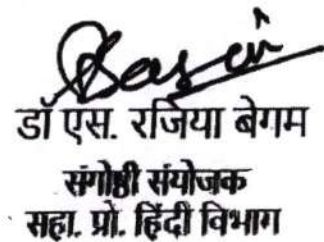 डॉ एस. रजिया बेगम
संगोष्ठी संयोजक
सहा. प्रो. हिंदी विभाग